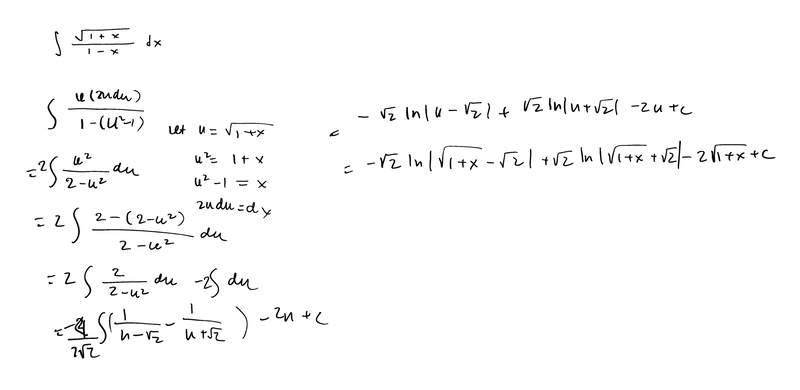 ∫ √(1+x) / (1-x) dx
∫ u(2udu) / (1-(u²-1))
let u = √(1+x)
u² = 1+x
u²-1 = x
2udu = dx
= 2∫ u² / (2-u²) du
= 2 ∫ (2-(2-u²)) / (2-u²) du
= 2 ∫ 2 / (2-u²) du -2∫ du
∫( 1/(u-√2) - 1/(u+√2) ) -2u + c
= -√2 ln|u-√2| + √2 ln|u+√2| -2u+c
= -√2 ln|√(1+x) - √2| + √2 ln|√(1+x) + √2| - 2√(1+x) + c